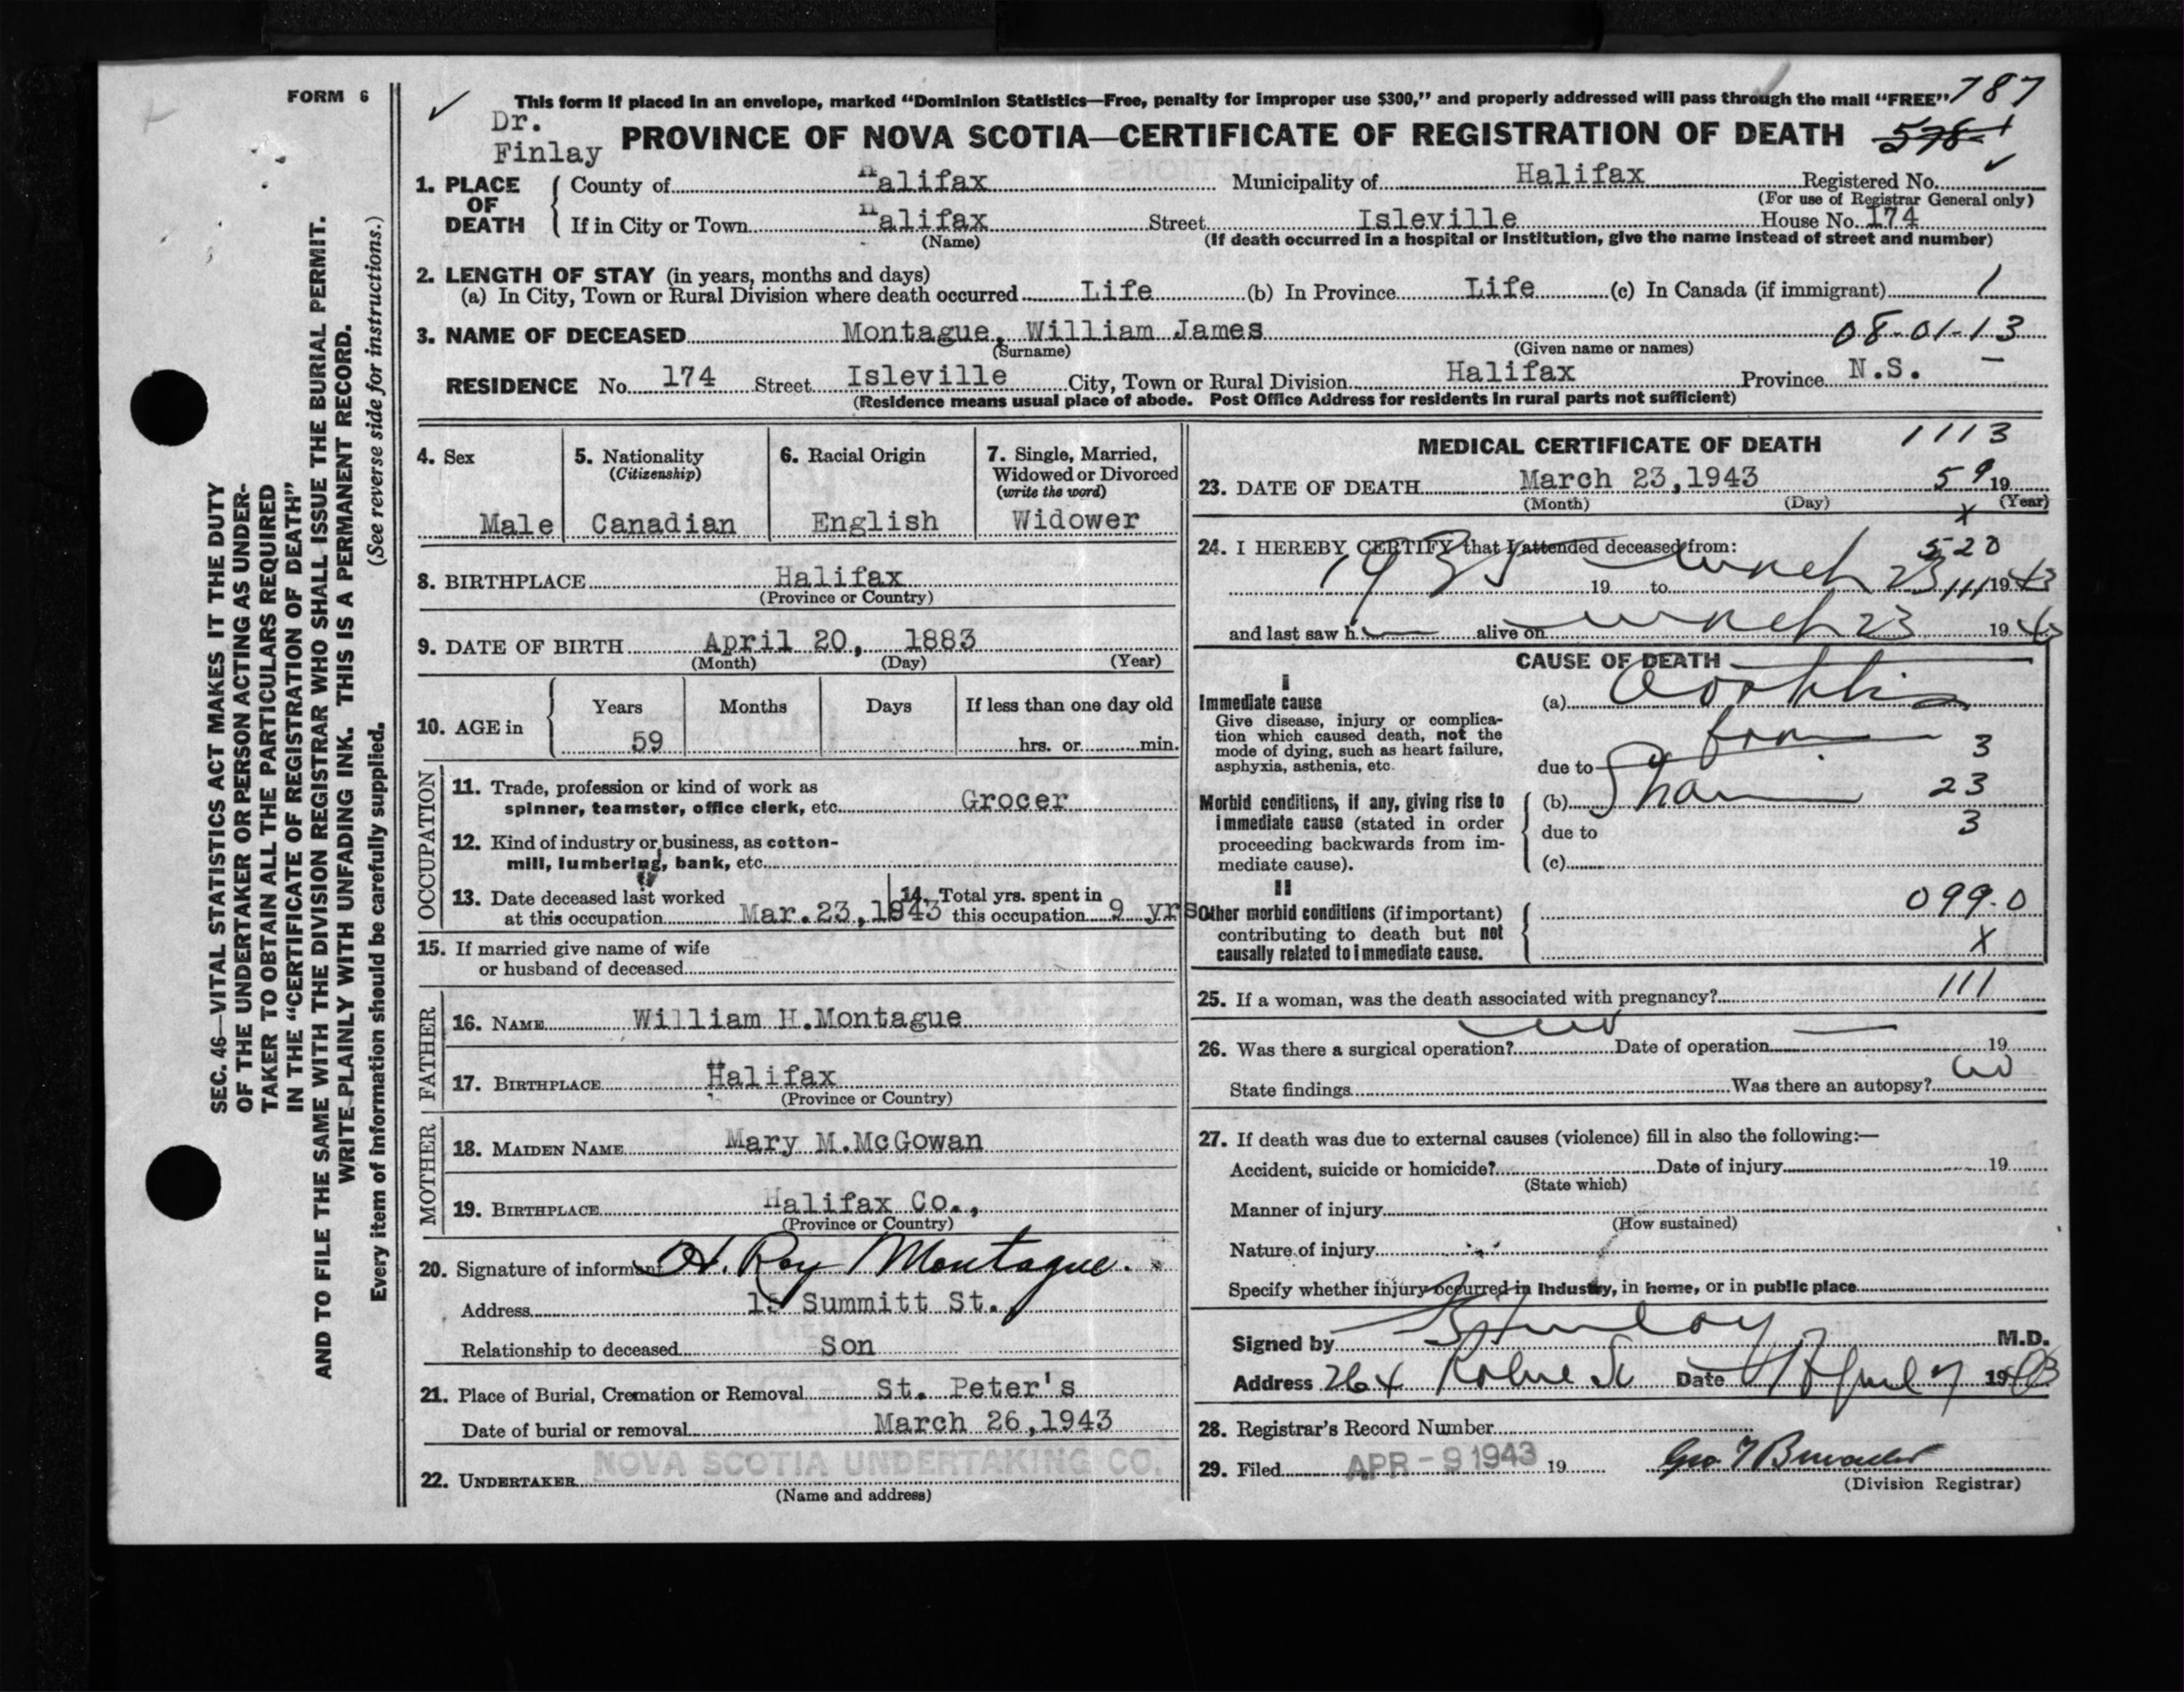 FORM 6
This form if placed in an envelope, marked "Dominion Statistics—Free, penalty for improper use $300," and properly addressed will pass through the mail "FREE" 787
Dr.
Finlay
PROVINCE OF NOVA SCOTIA—CERTIFICATE OF REGISTRATION OF DEATH 578
1. PLACE OF DEATH
County of Halifax Municipality of Halifax Registered No.
(For use of Registrar General only)
If in City or Town Halifax Street Isleville House No. 174
(Name) (If death occurred in a hospital or institution, give the name instead of street and number)
2. LENGTH OF STAY (in years, months and days)
(a) In City, Town or Rural Division where death occurred Life (b) In Province Life (c) In Canada (if immigrant) 1
3. NAME OF DECEASED Montague, William James 08-01-13
(Surname) (Given name or names)
RESIDENCE No. 174 Street Isleville City, Town or Rural Division Halifax Province N.S. —
(Residence means usual place of abode. Post Office Address for residents in rural parts not sufficient)
4. Sex
Male
5. Nationality
(Citizenship)
Canadian
6. Racial Origin
English
7. Single, Married,
Widowed or Divorced
(write the word)
Widower
8. BIRTHPLACE Halifax
(Province or Country)
9. DATE OF BIRTH April 20, 1883
(Month) (Day) (Year)
10. AGE in
Years Months Days If less than one day old
59 hrs. or min.
OCCUPATION
11. Trade, profession or kind of work as
spinner, teamster, office clerk, etc. Grocer
12. Kind of industry or business, as cotton-
mill, lumbering, bank, etc.
13. Date deceased last worked
at this occupation Mar.23,1943
14. Total yrs. spent in
this occupation 9 yrs
15. If married give name of wife
or husband of deceased
FATHER
16. NAME William H.Montague
17. BIRTHPLACE Halifax
(Province or Country)
MOTHER
18. MAIDEN NAME Mary M.McGowan
19. BIRTHPLACE Halifax Co.,
(Province or Country)
20. Signature of informant H. Roy Montague.
Address Summitt St.,
Relationship to deceased Son
21. Place of Burial, Cremation or Removal St. Peter's
Date of burial or removal March 26,1943
22. UNDERTAKER NOVA SCOTIA UNDERTAKING CO.
(Name and address)
MEDICAL CERTIFICATE OF DEATH 1113
23. DATE OF DEATH March 23,1943 59 19
(Month) (Day) (Year)
x
24. I HEREBY CERTIFY that I attended deceased from: 520
19 to March 23 111 1943
and last saw h alive on March 23 1943
CAUSE OF DEATH
I
Immediate cause
Give disease, injury or complica-
tion which caused death, not the
mode of dying, such as heart failure,
asphyxia, asthenia, etc.
(a)
due to 3
Morbid conditions, if any, giving rise to
immediate cause (stated in order
proceeding backwards from im-
mediate cause).
(b) 23
due to 3
(c)
II
Other morbid conditions (if important)
contributing to death but not
causally related to immediate cause.
099.0
X
25. If a woman, was the death associated with pregnancy? 111
26. Was there a surgical operation? no Date of operation — 19
State findings Was there an autopsy? no
27. If death was due to external causes (violence) fill in also the following:—
Accident, suicide or homicide? Date of injury 19
(State which)
Manner of injury
(How sustained)
Nature of injury
Specify whether injury occurred in industry, in home, or in public place
Signed by Finlay M.D.
Address 264 St Date April 7 1943
28. Registrar's Record Number
29. Filed APR - 9 1943 19
(Division Registrar)
SEC. 46—VITAL STATISTICS ACT MAKES IT THE DUTY
OF THE UNDERTAKER OR PERSON ACTING AS UNDER-
TAKER TO OBTAIN ALL THE PARTICULARS REQUIRED
IN THE "CERTIFICATE OF REGISTRATION OF DEATH"
AND TO FILE THE SAME WITH THE DIVISION REGISTRAR WHO SHALL ISSUE THE BURIAL PERMIT.
WRITE PLAINLY WITH UNFADING INK. THIS IS A PERMANENT RECORD.
Every item of information should be carefully supplied. (See reverse side for instructions.)